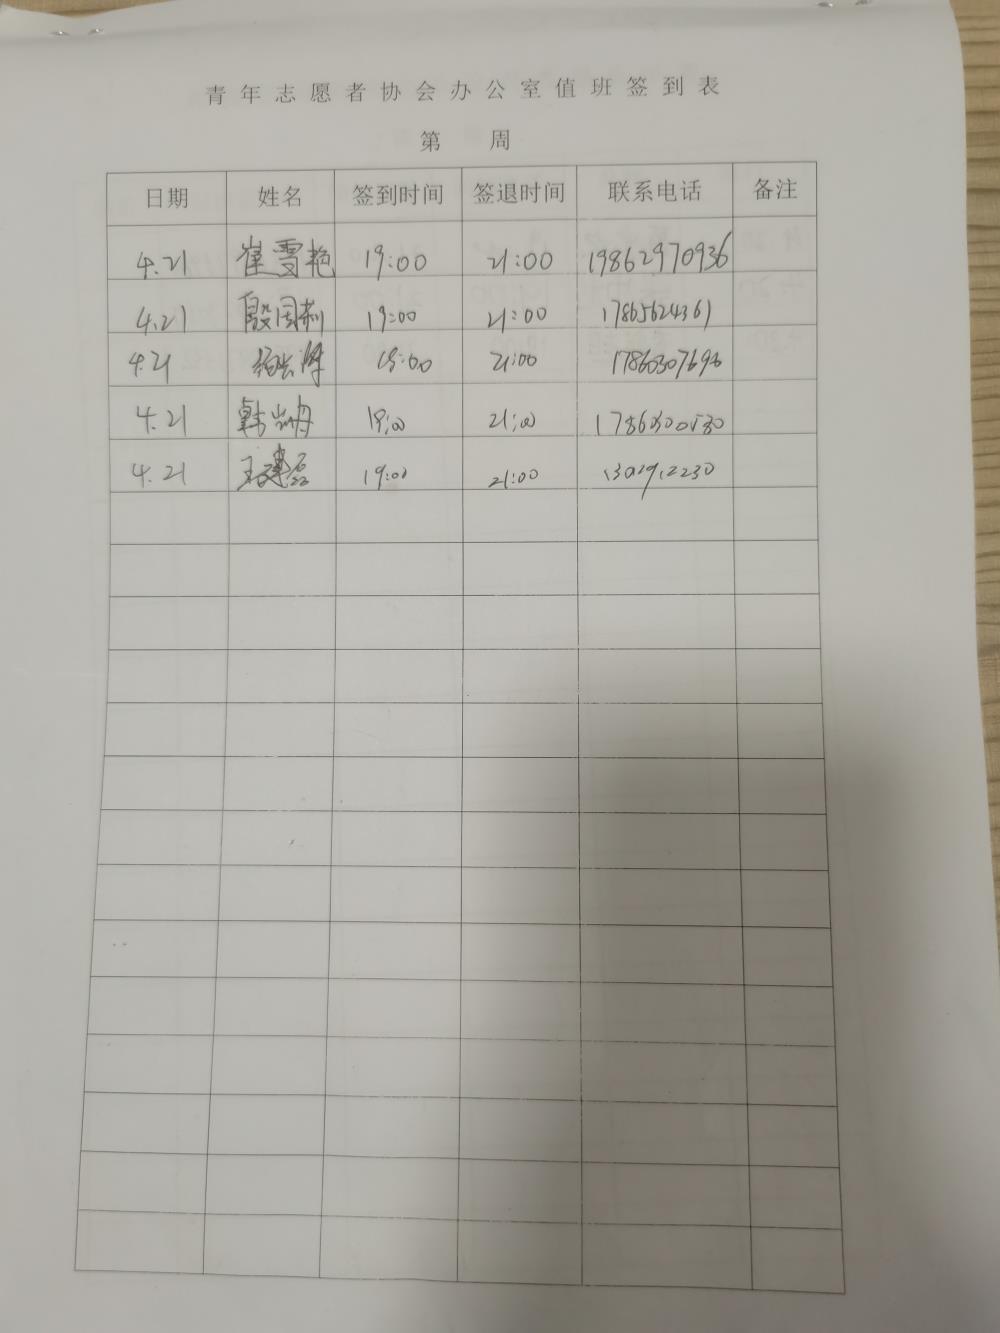 青年志愿者协会办公室值班签到表
第 周
日期 姓名 签到时间 签退时间 联系电话 备注
4.21 崔雪艳 19:00 21:00 19862970936
4.21 殷国莉 19:00 21:00 17865624361
4.21 19:00 21:00 17860307696
4.21 韩 19:00 21:00
4.21 王建磊 19:00 21:00